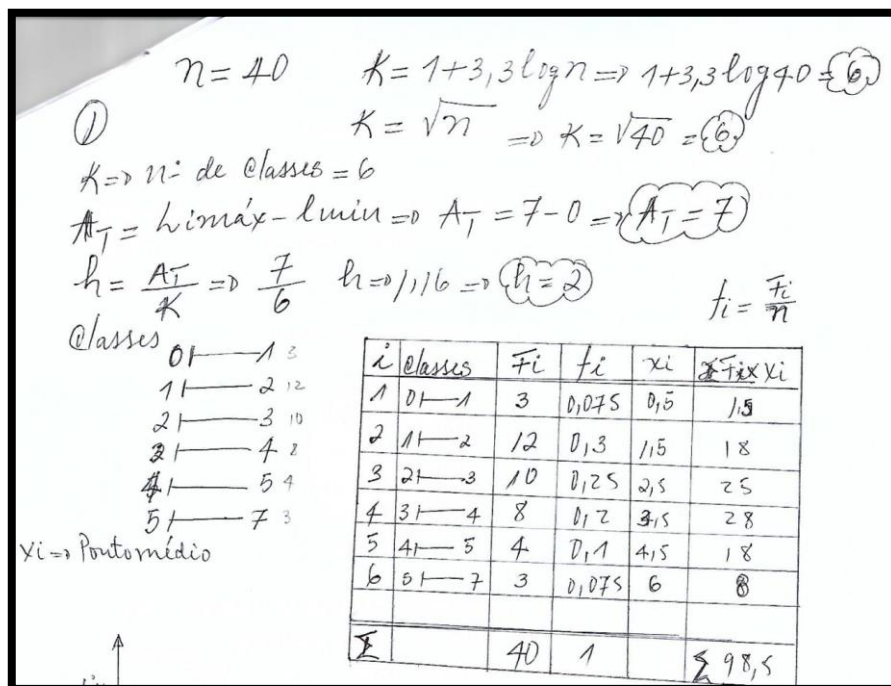 n = 40
K = 1 + 3,3 log n => 1 + 3,3 log 40 = 6
①
K = √n => K = √40 = 6
K => nº de classes = 6
AT = Limáx - lmin => AT = 7 - 0 => AT = 7
h = AT/K => 7/6 h => 1,16 => h = 2
fi = Fi/n
Classes
0 ⊢ 1 3
1 ⊢ 2 12
2 ⊢ 3 10
3 ⊢ 4 8
4 ⊢ 5 4
5 ⊢ 7 3
xi => Ponto médio
i classes Fi fi xi Fi x xi
1 0 ⊢ 1 3 0,075 0,5 1,5
2 1 ⊢ 2 12 0,3 1,5 18
3 2 ⊢ 3 10 0,25 2,5 25
4 3 ⊢ 4 8 0,2 3,5 28
5 4 ⊢ 5 4 0,1 4,5 18
6 5 ⊢ 7 3 0,075 6 8
Σ 40 1 Σ 98,5